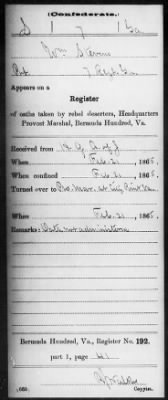 (Confederate.)
S 1 7 1 Ga
Wm
Pvt 7 Regt Ga
Appears on a
Register
of oaths taken by rebel deserters, Headquarters
Provost Marshal, Bermuda Hundred, Va.
Received from
When Feb. 21, 1865.
When confined Feb. 21, 1865.
Turned over to Pro. Mar. at City Point Va.
When Feb. 21, 1865.
Remarks: Oath not administered
Bermuda Hundred, Va., Register No. 192.
part 1, page 41
Copyist.